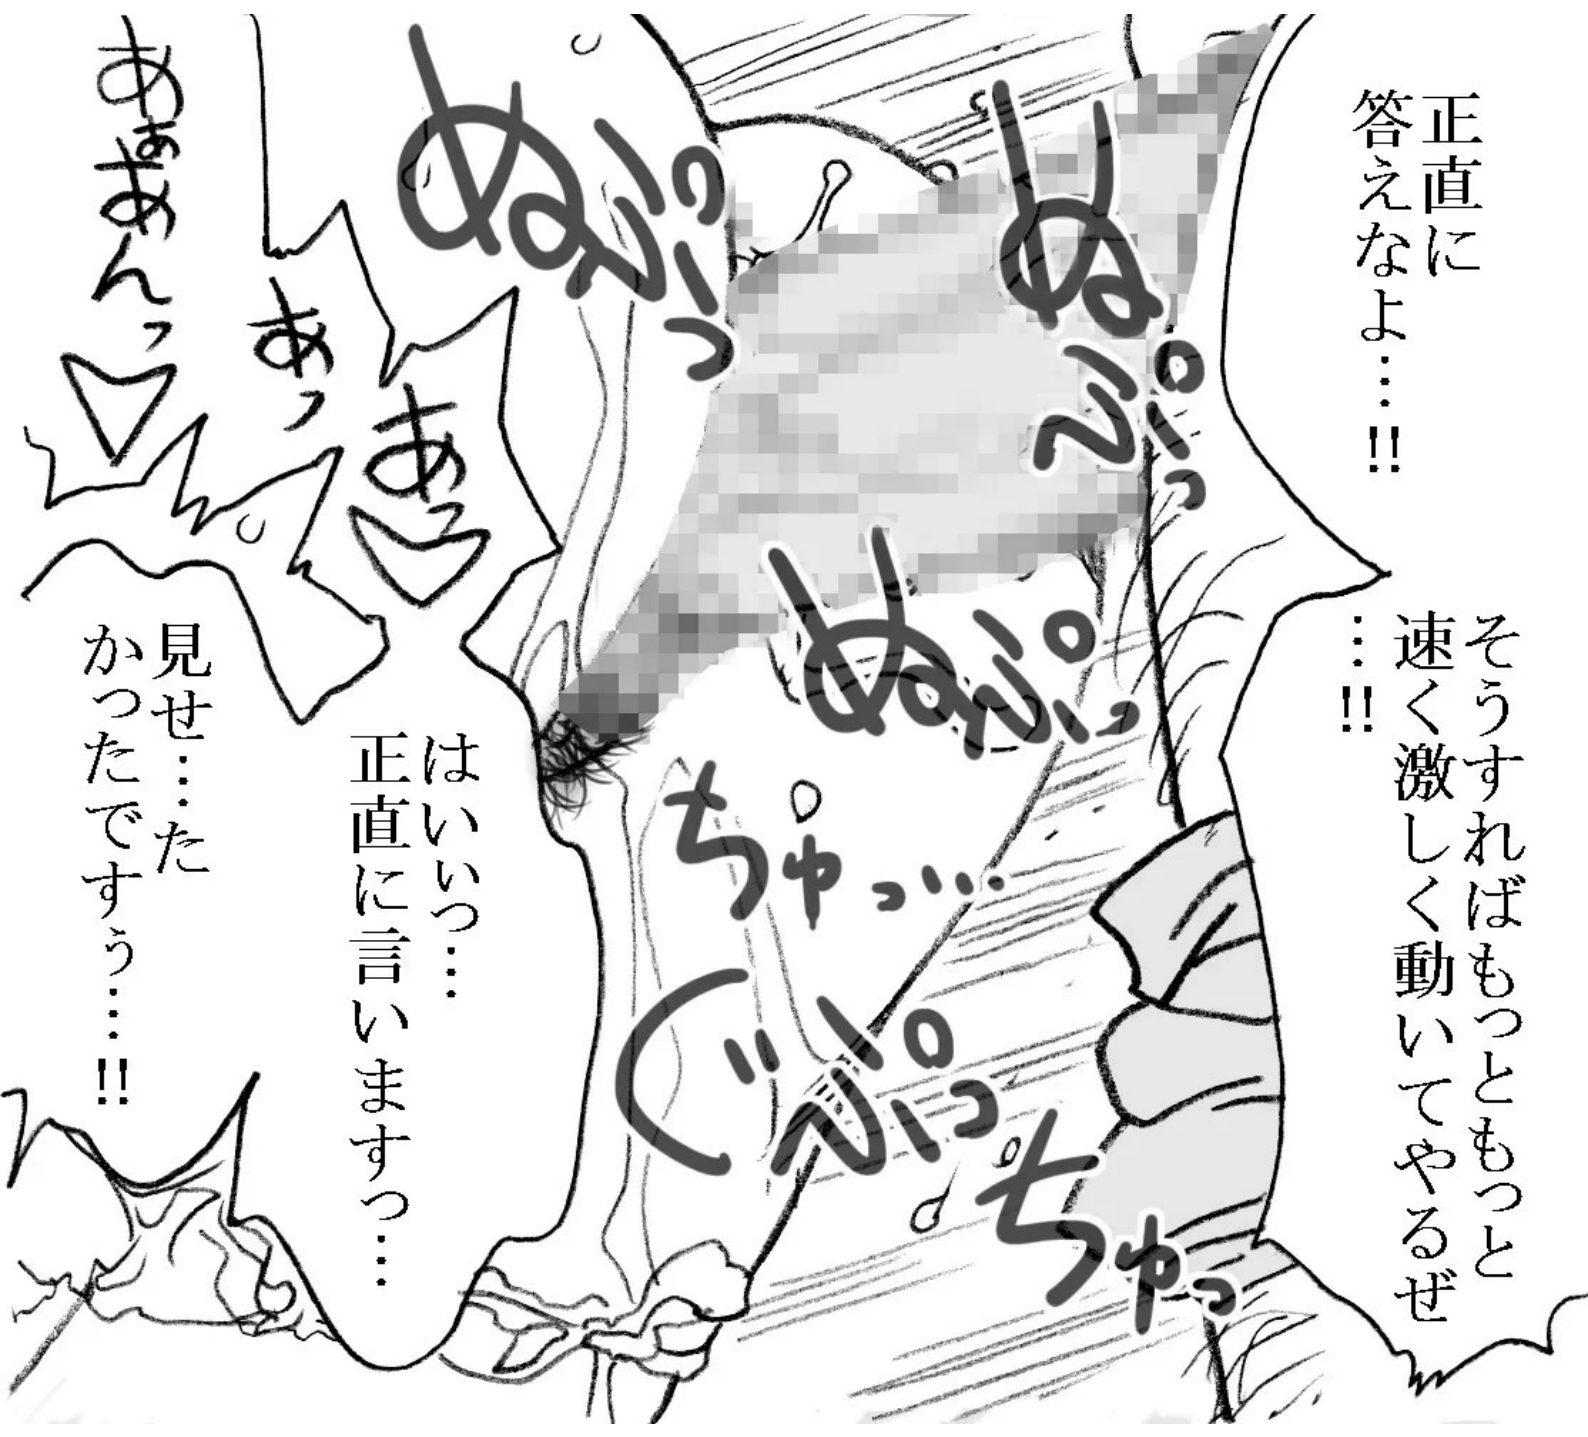 正直に
答えなよ…!!
そうすればもっともっと
速く激しく動いてやるぜ
…!!
ぬぷっ
ぬぷっ
ぬぷっ
ちゅっ…
ぐぷっ
ちゅっ
あっ
あっ
あぁあんっ
はいぃっ…
正直に言いますっ…
見せ…た
かったですぅ…!!